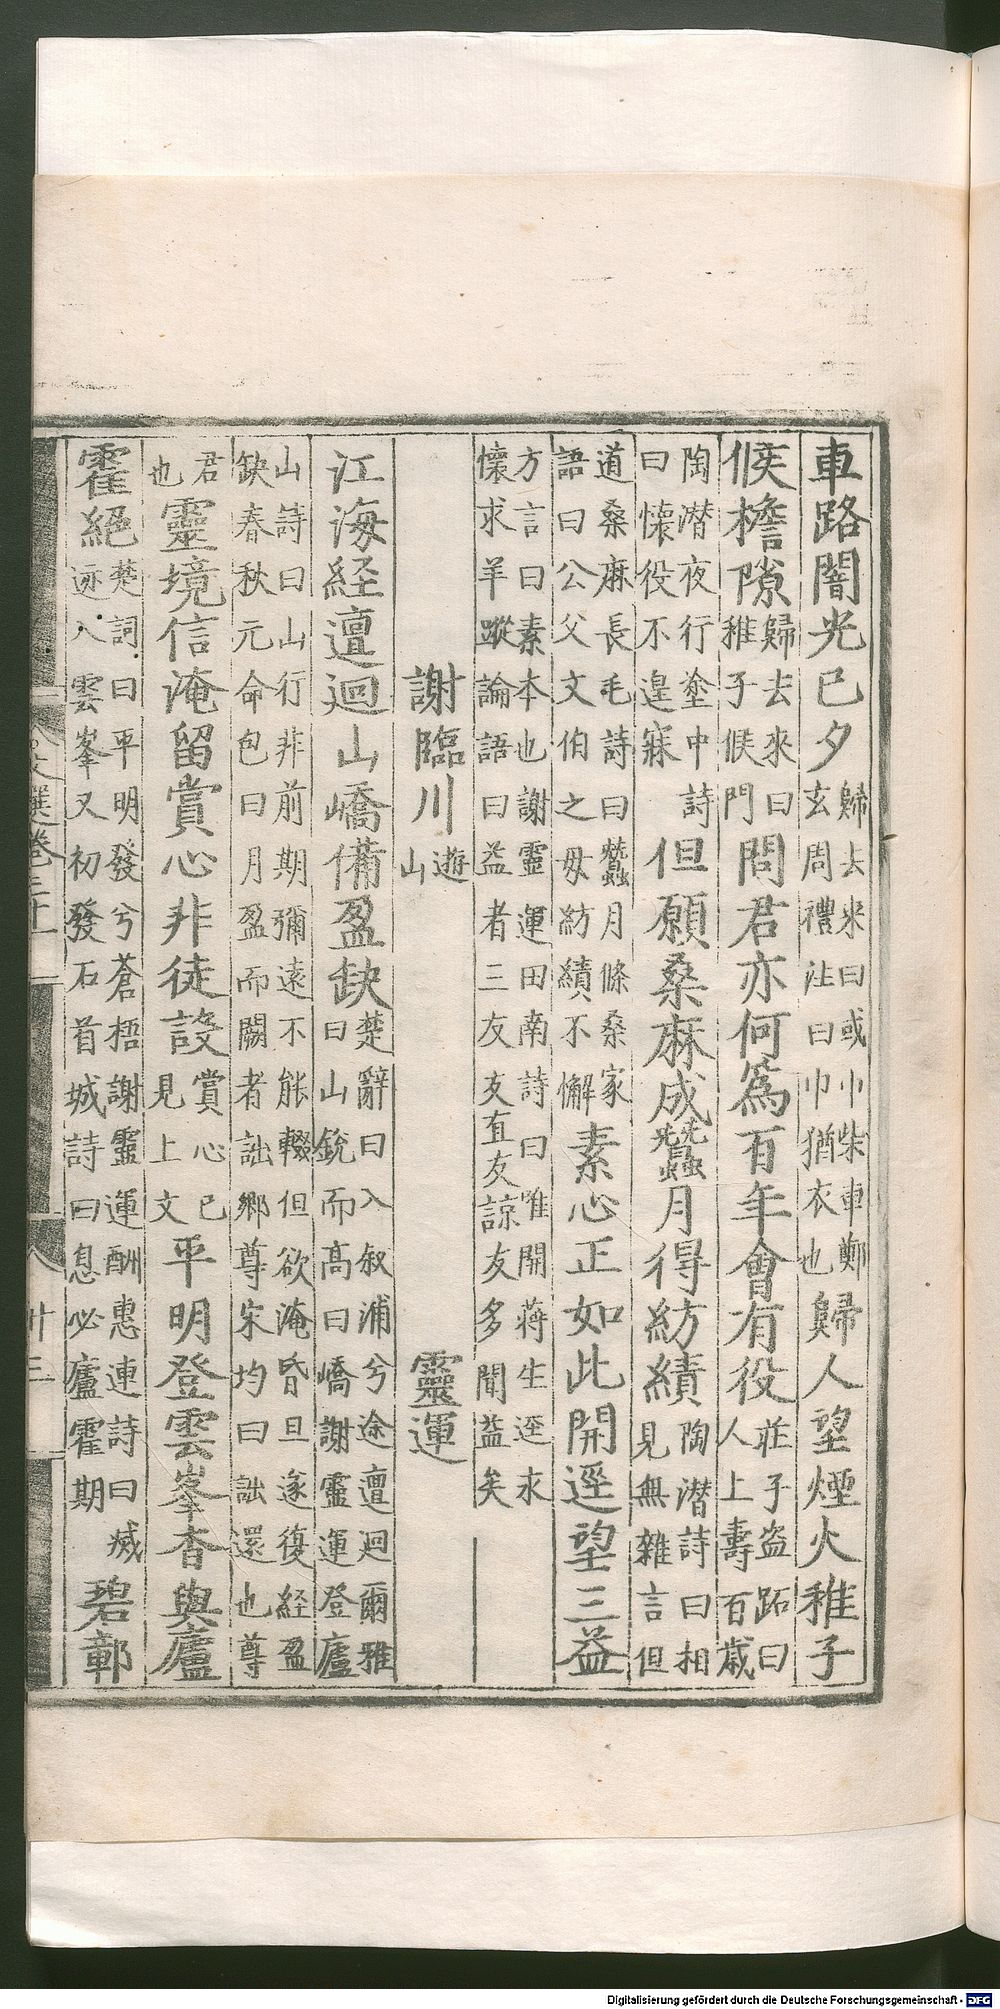 車路闇光已夕歸去来曰或巾柴車鄭玄周禮注曰巾猶衣也歸人望煙火稚子
候檐隙歸去來曰稚子候門問君亦何爲百年會有役莊子盗跖曰人上壽百歳
陶潜夜行塗中詩曰懐役不遑寐但願桑麻成蠶月得紡績陶潜詩曰相見無雜言但
道桑麻長毛詩曰蠶月條桑家語曰公父文伯之母紡績不懈素心正如此開逕望三益
方言曰素本也謝靈運田南詩曰唯開蒋生逕永懐求羊蹤論語曰益者三友友直友諒友多聞益矣
謝臨川遊山 靈運
江海経邅迴山嶠備盈缺楚辭曰入叙浦兮途邅迴爾雅曰山銳而高曰嶠謝靈運登廬
山詩曰山行非前期彌遠不能輟但欲淹昏旦遂復経盈缺春秋元命包曰月盈而闕者詘郷尊宋均曰詘還也尊
君也靈境信淹留賞心非徒設賞心已見上文平明登雲峯杳與廬
霍絕楚詞曰平明發兮蒼梧謝靈運酬惠連詩曰滅迹入雲峯又初發石首城詩曰息必廬霍期碧鄣
文選卷三十一
八
卅三
Digitalisierung gefördert durch die Deutsche Forschungsgemeinschaft - DFG